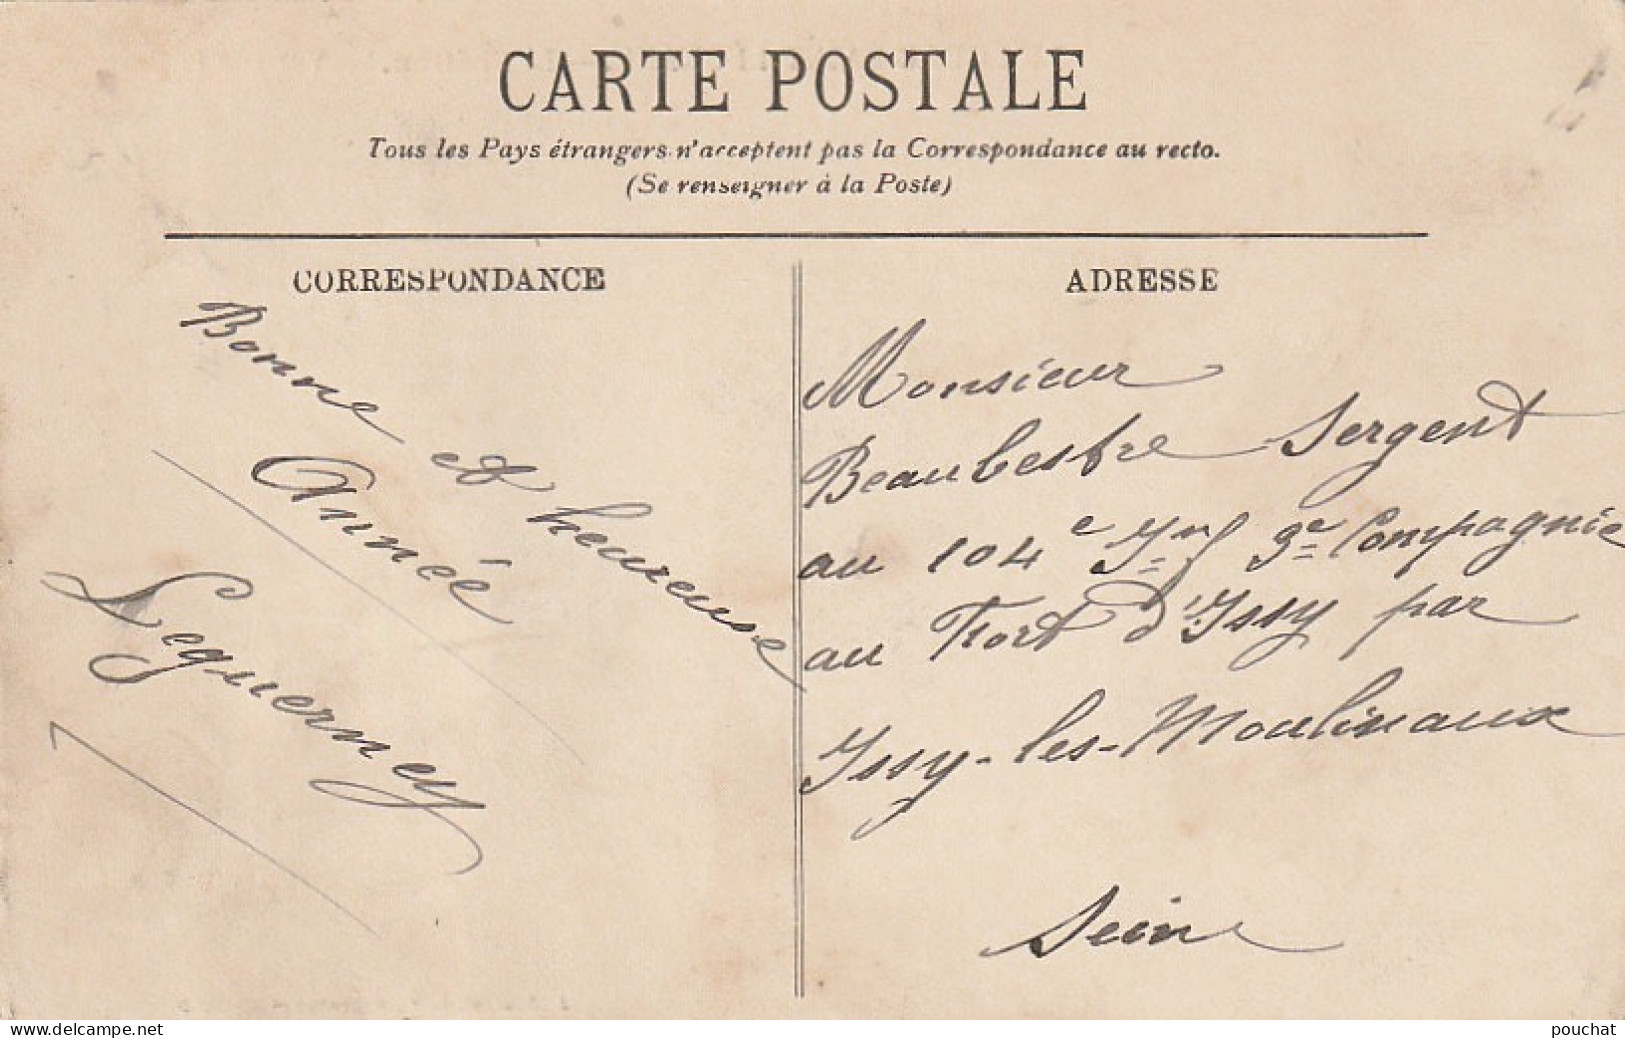 CARTE POSTALE
Tous les Pays étrangers n'acceptent pas la Correspondance au recto.
(Se renseigner à la Poste)
CORRESPONDANCE
Bonne et heureuse
Année
Leguerney
ADRESSE
Monsieur
Beaubestre Sergent
au 104e Inf 9e Compagnie
au Fort d'Issy par
Issy-les-Moulineaux
Seine
www.delcampe.net
pouchat